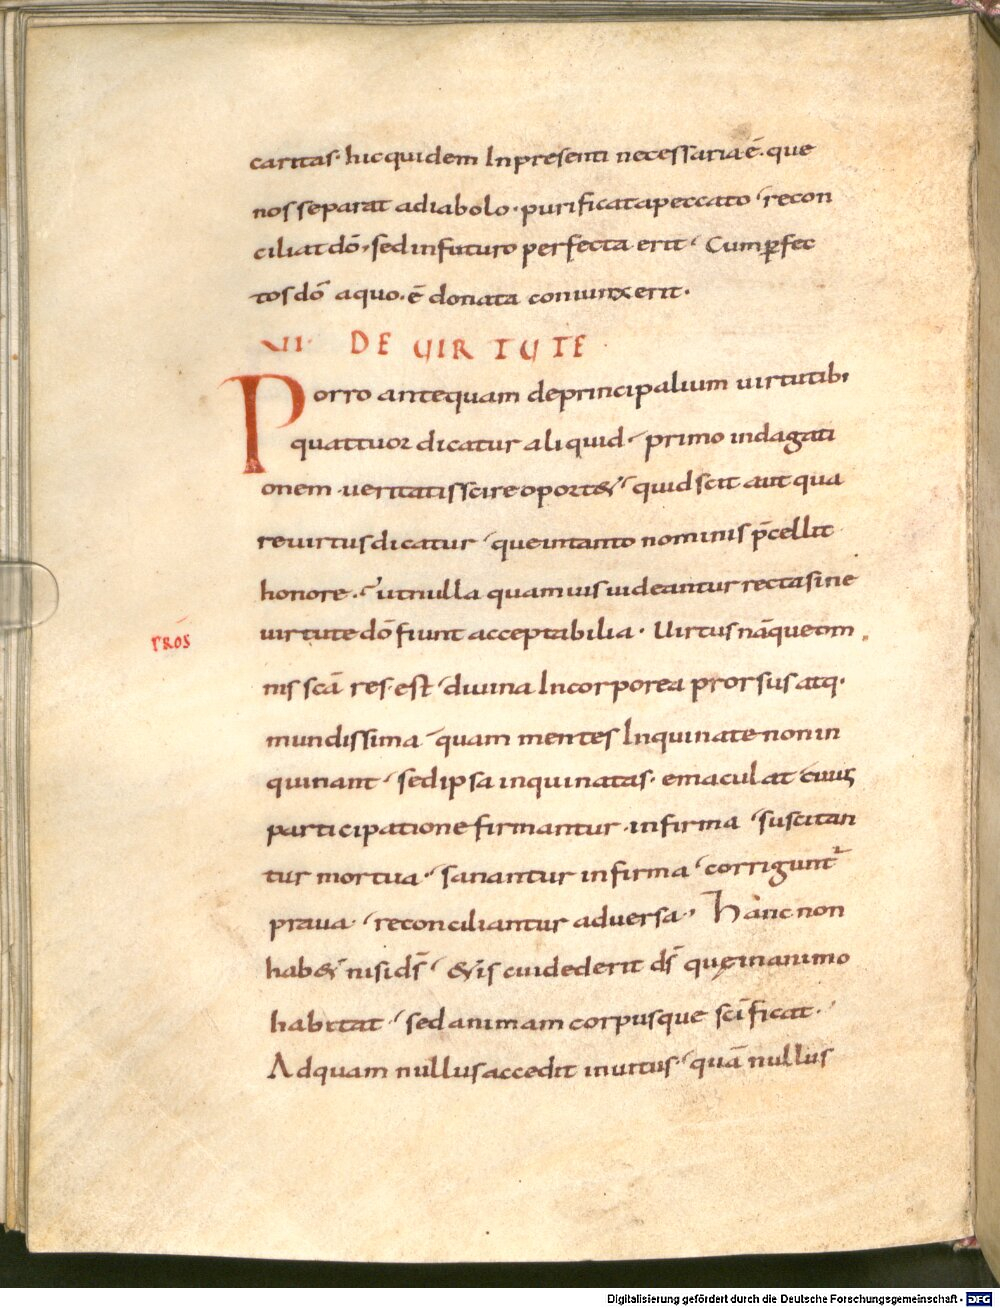 caritas· hic quidem In presenti necessaria ē· que
nos separat a diabolo· purificat a peccato· recon
ciliat dō· sed in futuro perfecta erit· Cum perfec
tos dō a quo· ē donata coniunxerit·
VII· DE VIRTUTE·
Porro antequam de principalium uirtutib;
quattuor dicatur aliquid· primo indagati
onem ueritatis scire oport&· quid scit aut qua
re uirtus dicatur· que in tanto nominis p̄cellit
honore· ut nulla quamuis uideantur recta sine
uirtute dō fiunt acceptabilia· Uirtus nāque om
PROS
nis scā res est· diuina Incorporea prorsus atq·
mundissima· quam mentes Inquinate non in
quinant· sed ipsa inquinatas· emaculat· cuius
participatione firmantur infirma· suscitan
tur mortua· sanantur infirma· corrigunt᷑
praua· reconciliantur aduersa· Hanc non
hab& nisi ds̄· & is cui dederit ds̄ que in animo
habitat· sed animam corpusque sc̄ificat·
Ad quam nullus accedit inuitus· quā nullus
Digitalisierung gefördert durch die Deutsche Forschungsgemeinschaft - DFG